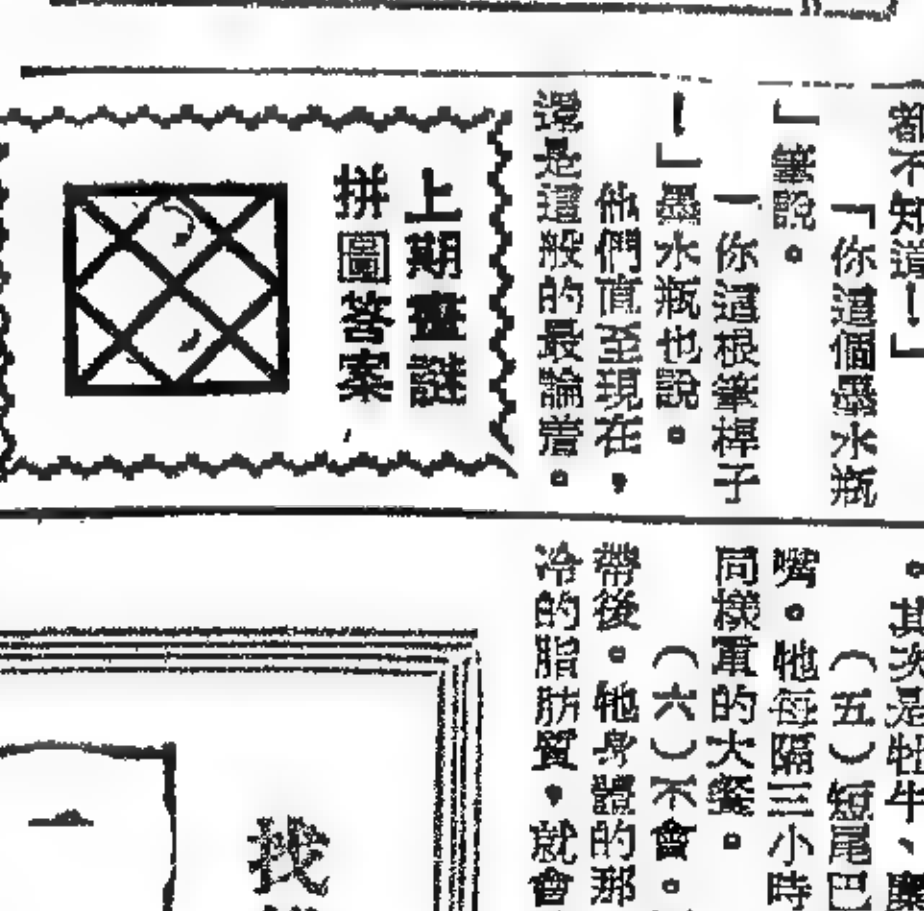 都不知道！」
「你這個墨水瓶
」筆說。
「你這根筆桿子
！」墨水瓶也說。
他們直至現在，
還是這般的最論着。
上期畫謎
拼圖答案
。其次是牡牛、
（五）短尾巴
嘴。牠每隔三小時
同樣重的大餐。
（六）不會。
帶後。牠身體的那
冷的脂肪質，就會
找